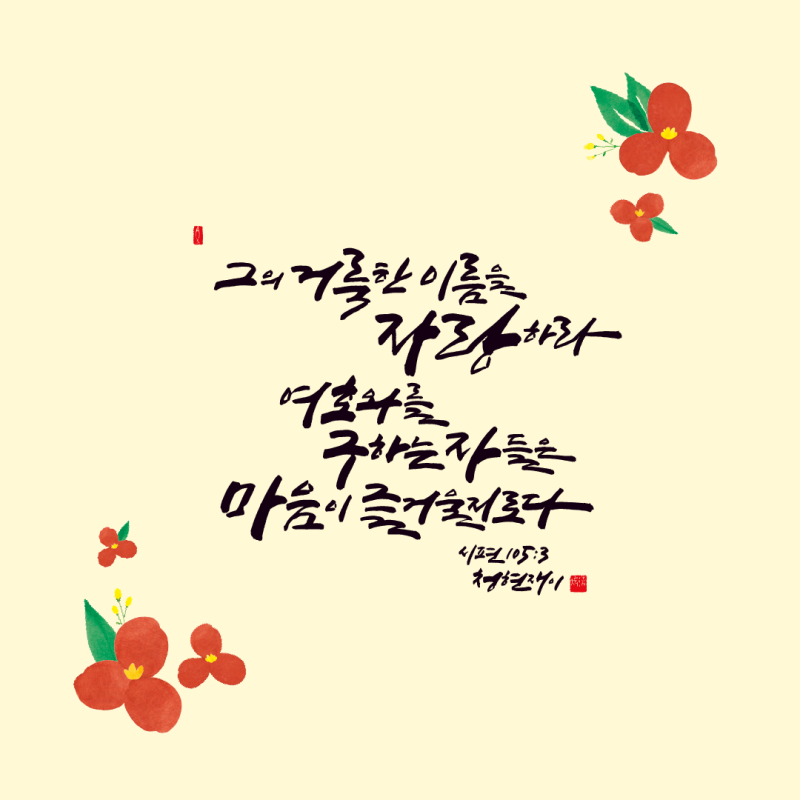 그의 거룩한 이름을
자랑하라
여호와를
구하는 자들은
마음이 즐거울지로다
시편 105:3
청현재이